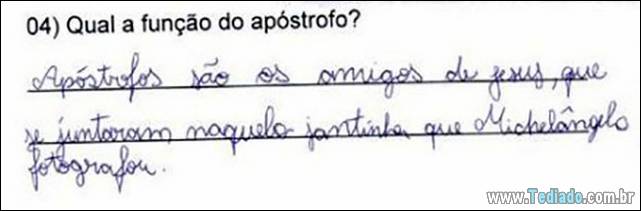 04) Qual a função do apóstrofo?
Apóstrofos são os amigos de jesus, que
se juntaram naquela jantinha que Michelângelo
fotografou.
www.Tediado.com.br